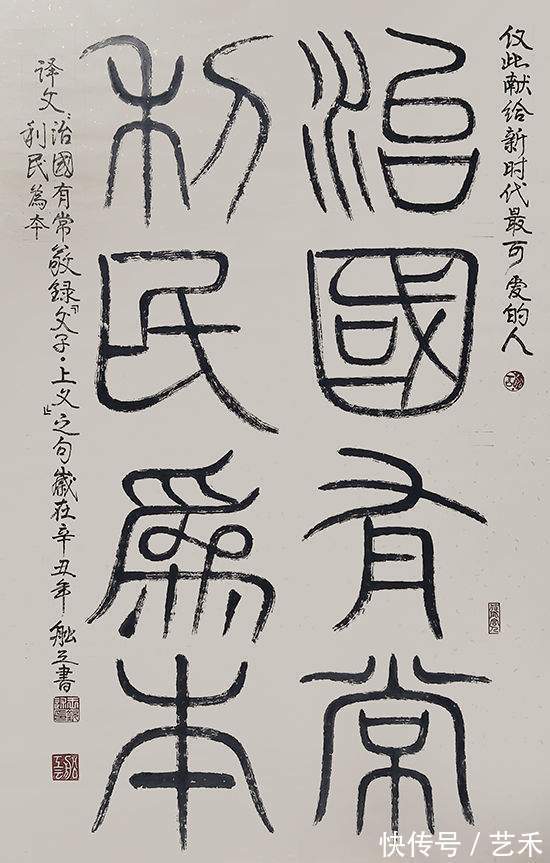 仅此献给新时代最可爱的人
治國有常
利民為本
译文:治國有常
利民為本
敬録「文子·上义」之句歲在辛丑年之書
快传号/艺禾